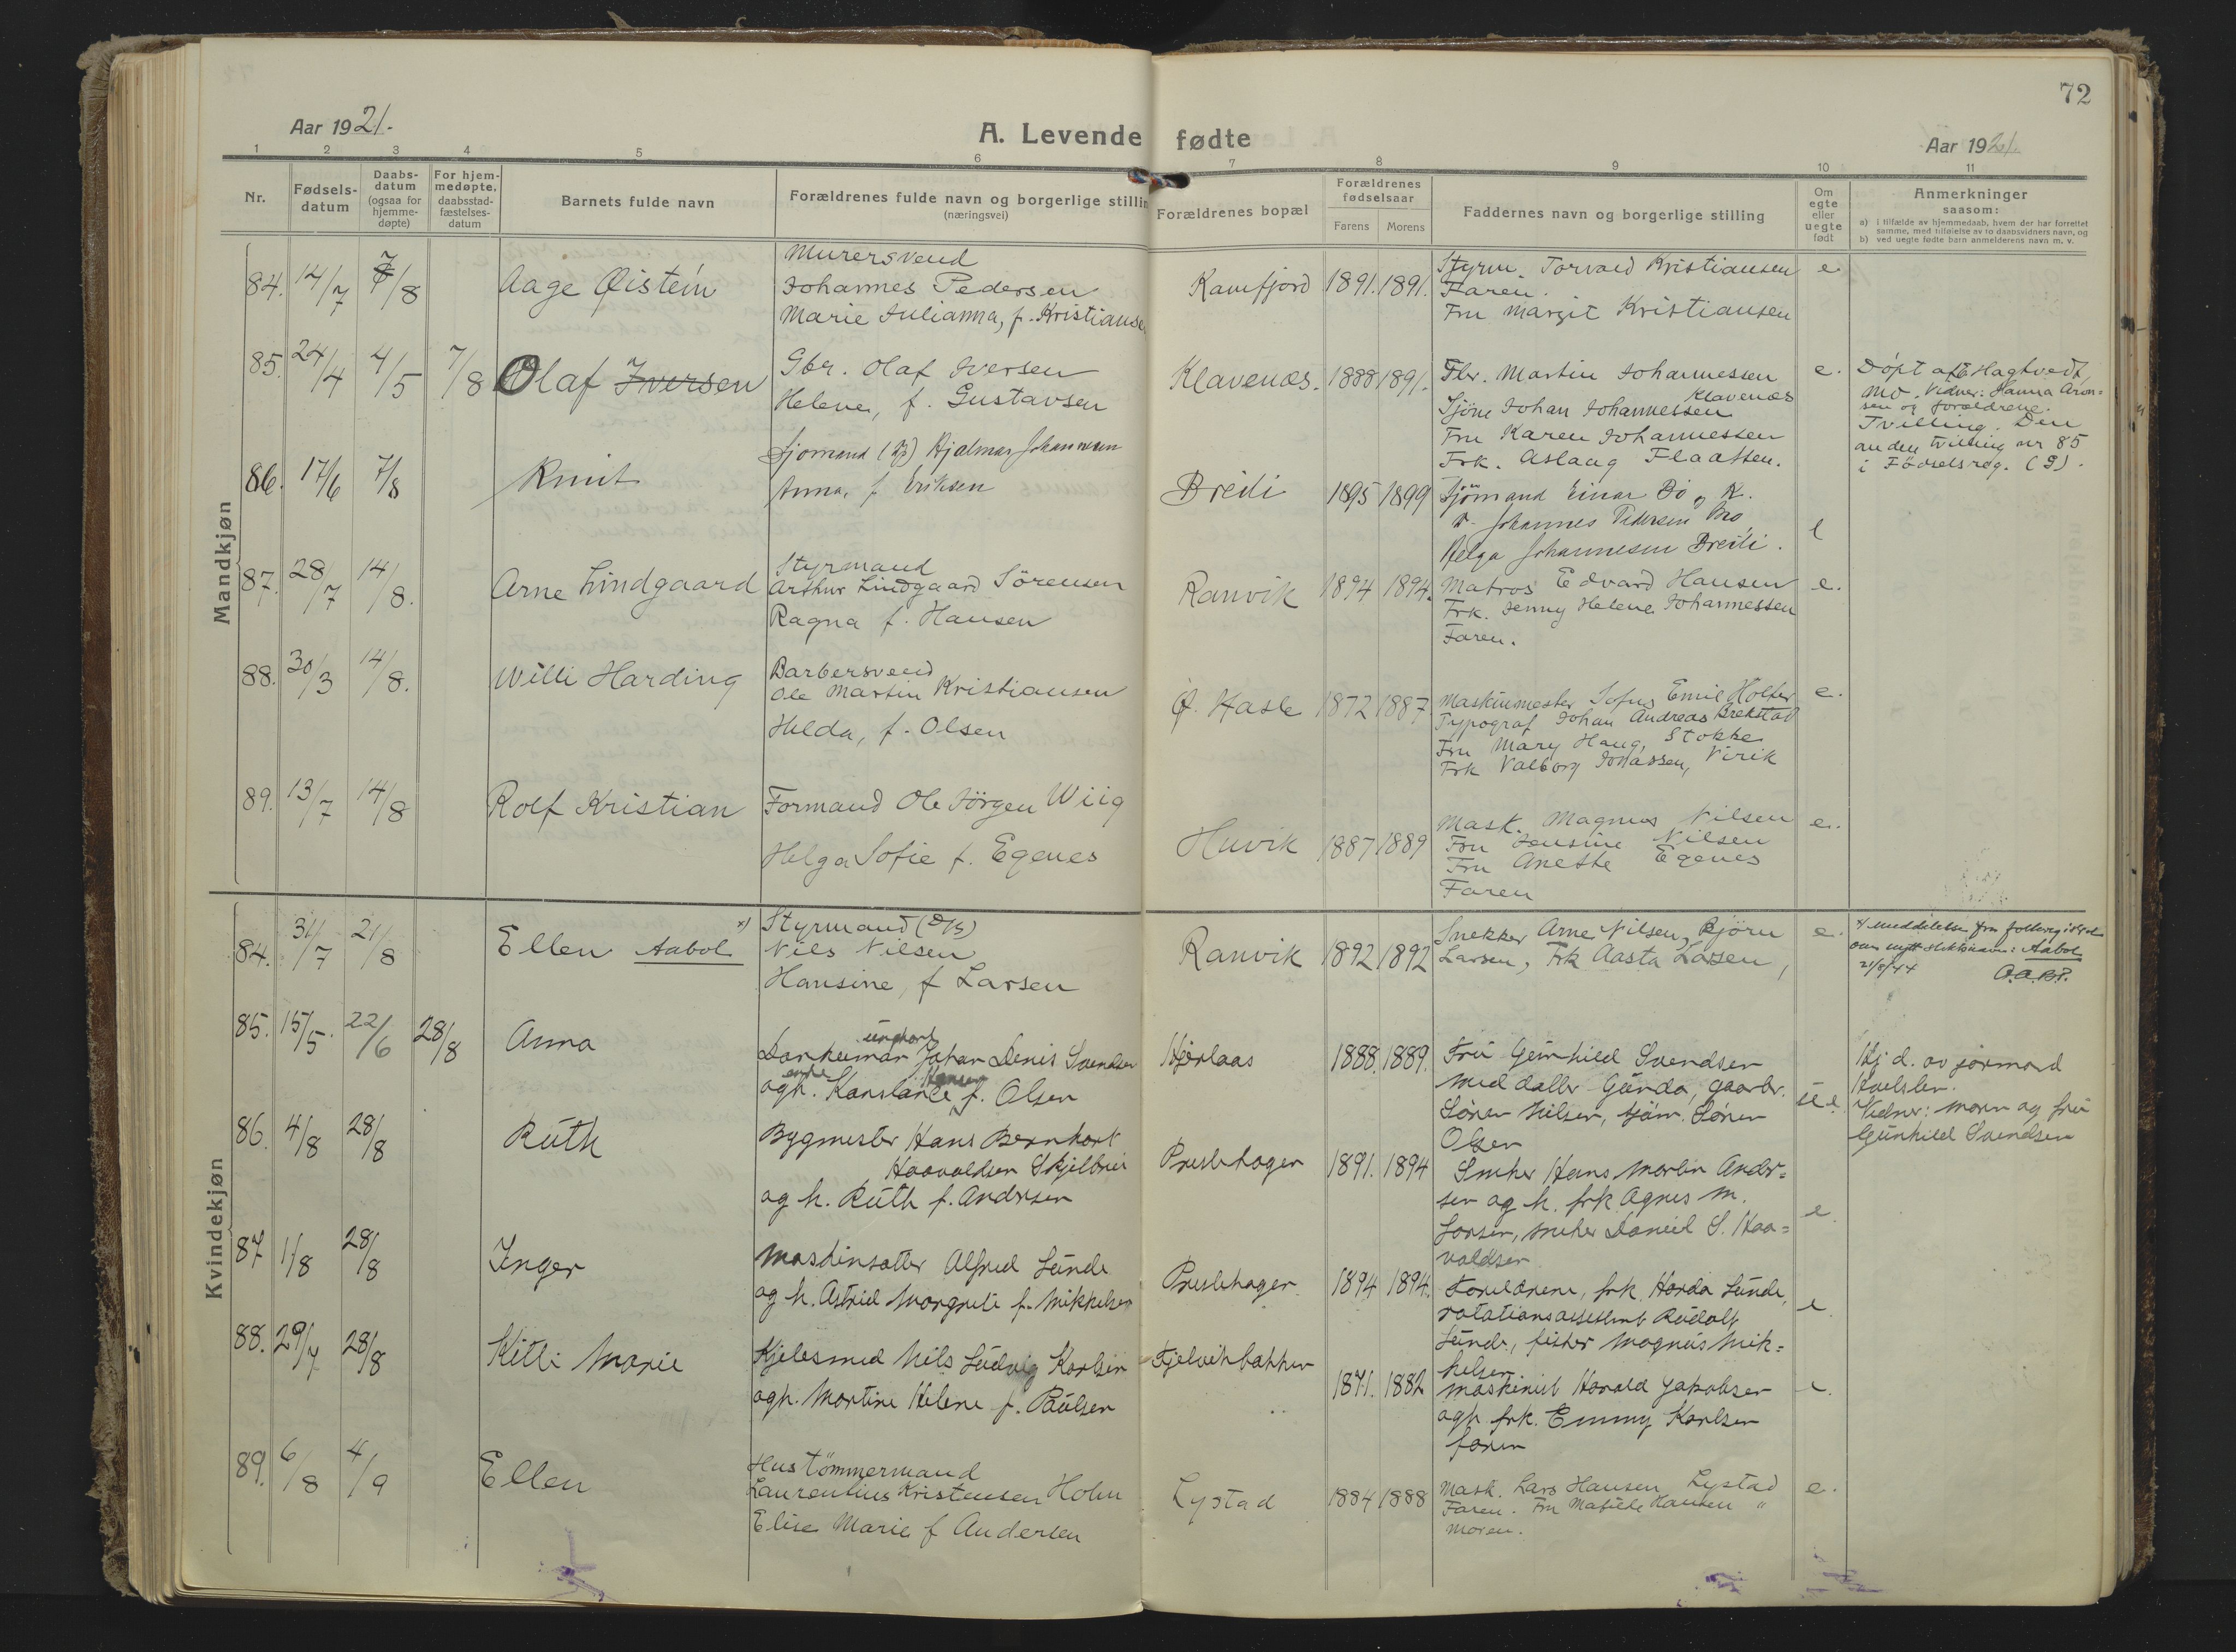 72
Aar 1921.
A. Levende fødte
Aar 1921.
1 2 3 4 5 6 7 8 9 10 11
Nr.
Fødsels-
datum
Daabs-
datum
(ogsaa for
hjemme-
døpte)
For hjem-
medøpte,
daabsstad-
fæstelses-
datum
Barnets fulde navn
Forældrenes fulde navn og borgerlige stillin
(næringsvei)
Forældrenes bopæl
Forældrenes
fødselsaar
Farens Morens
Faddernes navn og borgerlige stilling
Om
egte
eller
uegte
født
Anmerkninger
saasom:
a) i tilfælde av hjemmedaab, hvem der har forrettet
samme, med tilføielse av to daabsvidners navn, og
b) ved uegte fødte barn anmelderens navn m. v.
Mandkjøn
84. 14/7 7/8 Aage Øistein
Murersvend
Johannes Pedersen
Marie Julianna, f. Kristianse
Kamfjord 1891. 1891.
Styrm. Torvald Kristiansen
Faren.
Fru Margit Kristiansen
e.
85. 24/4 4/5 7/8 Olaf Iversen
Gbr. Olaf Iversen
Helene, f. Gustavsen
Klavenæs. 1888 1891.
Fbr. Martin Johannessen
Klavenæs
Sjöm Johan Johannessen
Fru Karen Johannessen
Frk. Aslaug Flaatten.
e.
Døpt af E Hagtvedt,
Mo. Vidner: Hanna Aron=
sen og forældrene.
Tvilling. Den
anden tvilling nr 85
i Födselsreg. (G).
86. 17/6 7/8 Knut
Sjømand Hjalmar Johannesen
Anna, f. Eriksen
Breili 1895 1899
Sjömand Einar Bö, K.
Johannes Pedersen Mo
Helga Johannesen Breili.
e
87. 28/7 14/8. Arne Lindgaard
Styrmand
Arthur Lindgaard Sörensen
Ragna f. Hansen
Ranvik 1894 1894.
Matros Edvard Hansen
Frk. Jenny Helene Johannessen
Faren.
e.
88. 30/3 14/8. Willi Harding
Barbersvend
Ole Martin Kristiansen
Hilda, f. Olsen
Ø. Hasle 1872 1887
Maskinmester Sofus Emil Holter
Typograf Johan Andreas Brekstad
Fru Mary Haug, Stokke
Frk Valborg Jonassen, Virik
e.
89. 13/7 14/8 Rolf Kristian
Formand Ole Jörgen Wiig
Helga Sofie f. Egenes
Huvik 1887 1889
Mask. Magnus Nilsen
Fru Jensine Nilsen
Fru Anette Egenes
Faren
e.
Kvindekjøn
84. 31/7 21/8 Ellen Aabol x)
Styrmand (D/S)
Nils Nilsen
Hansine, f Larsen
Ranvik 1892 1892
Snekker Arne Nilsen, Bjørn
Larsen, Frk Aasta Larsen,
e.
x/ Meddelelse fra
om nytt slektsnavn: Aabol
21/8/44
85. 15/5. 22/6 28/8 Anna
ungkarl
Johan Denis Svendsen
enke Hansen
ogh. Konstance f. Olsen
Hjerlaas 1888. 1889.
Fru Gunhild Svendsen
med datter Gunda, gaarbr.
Sören Nilsen, sjöm. Sören
Olsen
u e.
Hj d. av jormord
Kvelsler.
Vidner: moren og fru
Gunhild Svendsen
86. 4/8 28/8 Ruth
Bygmester Hans Bernhart
Haavaldsen Skjelbrei
og h. Ruth f. Andersen
Preslehagen 1891. 1894
Snekker Hans Martin Ander=
sen og h. frk. Agnes M.
Larsen, snekker Daniel S. Haa=
valdsen
e.
87 1/8 28/8 Inger
Maskinsætter Alfred Lunde
og h. Astrid Margrete f. Mikkelsen
Preslehagen. 1894 1894.
Foreldrene, frk. Harda Lunde,
rotationsassistent Rudolf
Lunde, fisker Magnus Mik=
kelsen
e.
88. 29/7 28/8 Kitti Marie
Kjelesmed Nils Ludvig Karlsen
ogh. Martine Helene f. Paulsen
Fjelvikbakken 1871. 1882
Maskinist Harald Jakobsen
ogh. frk. Emmy Karlsen
faren
e.
89. 6/8 4/9 Ellen
Hustömmermand
Laurentius Kristensen Holm
Elise Marie f Andersen
Lystad 1884 1888
Mask. Lars Hansen Lystad
Faren. Fru Matilde Hansen "
Moren.
e.